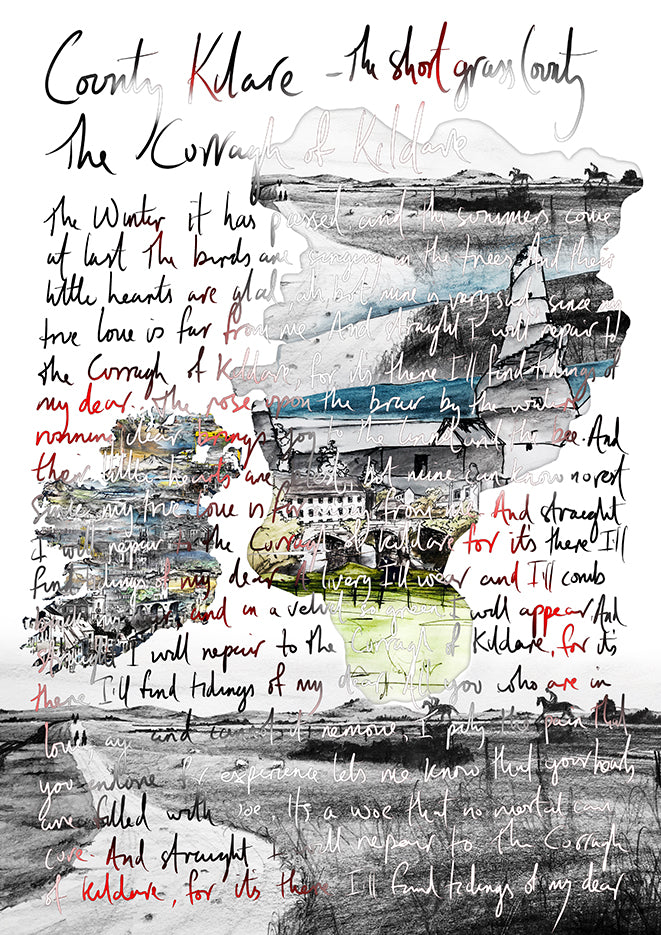 County Kilare - The short grass County
The Curragh of Kildare
The Winter it has passed and the summers come
at last The birds are singing in the trees And their
little hearts are glad ah but mine is very sad since my
true love is far from me And straight I will repair to
the Curragh of Kildare, for it's there I'll find tidings of
my dear. The rose upon the briar by the waters
running clear brings joy to the linnet and the bee. And
their little hearts are but mine can know no rest
Since my true love is far from me. And straight
I will repair to the Curragh of Kildare for it's there I'll
find tidings of my dear A livery I'll wear and I'll comb
my and in a velvet so green I will appear And
straight I will repair to the Curragh of Kildare, for it's
there I'll find tidings of my dear All you who are in
love aye and cannot it remove, I pity the pain that
you endure for experience lets me know that your hearts
are filled with woe. It's a woe that no mortal can
cure And straight I will repair to the Curragh
of Kildare, for it's there I'll find tidings of my dear